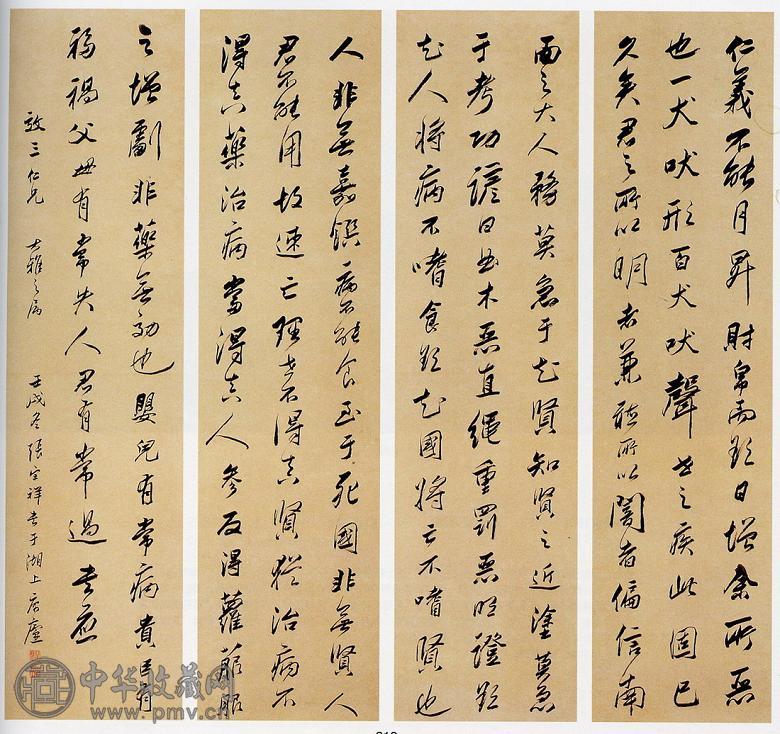 仁義不能月昇財帛而欲日增余所惡
也一犬吠形百犬吠聲世之疾此固已
久矣君之所以明者兼聽所以闇者偏信南
面之大人務莫急于知賢知賢之近塗莫急
于考功諺曰曲木惡直繩重罰惡明證欲
知人將病不嗜食欲知國將亡不嗜賢也
人非無嘉饌病不能食至于死國非無賢人
君不能用故速亡理世不得真賢猶治病不
得真藥治病當得真人參反得蘿菔服
之增劇非藥無功也嬰兒有常病貴臣有
福禍父母有常失人君有常過 書應
敬三仁兄 大雅之属 壬戌冬張宗祥書于湖上居廬
中华收藏网
www.pmv.cn